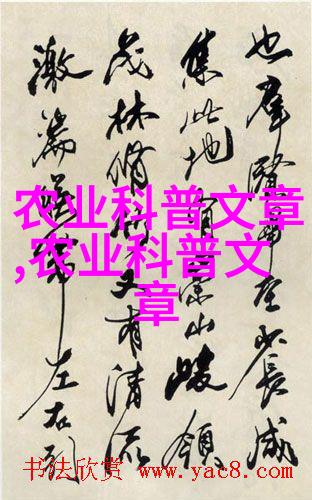 也羣賢畢至少長咸
集此地有崇山峻領
茂林脩竹又有清流
激湍暎帶左右引
农业科普文章
,农业科普文
章
书法欣赏 www.yac8.com